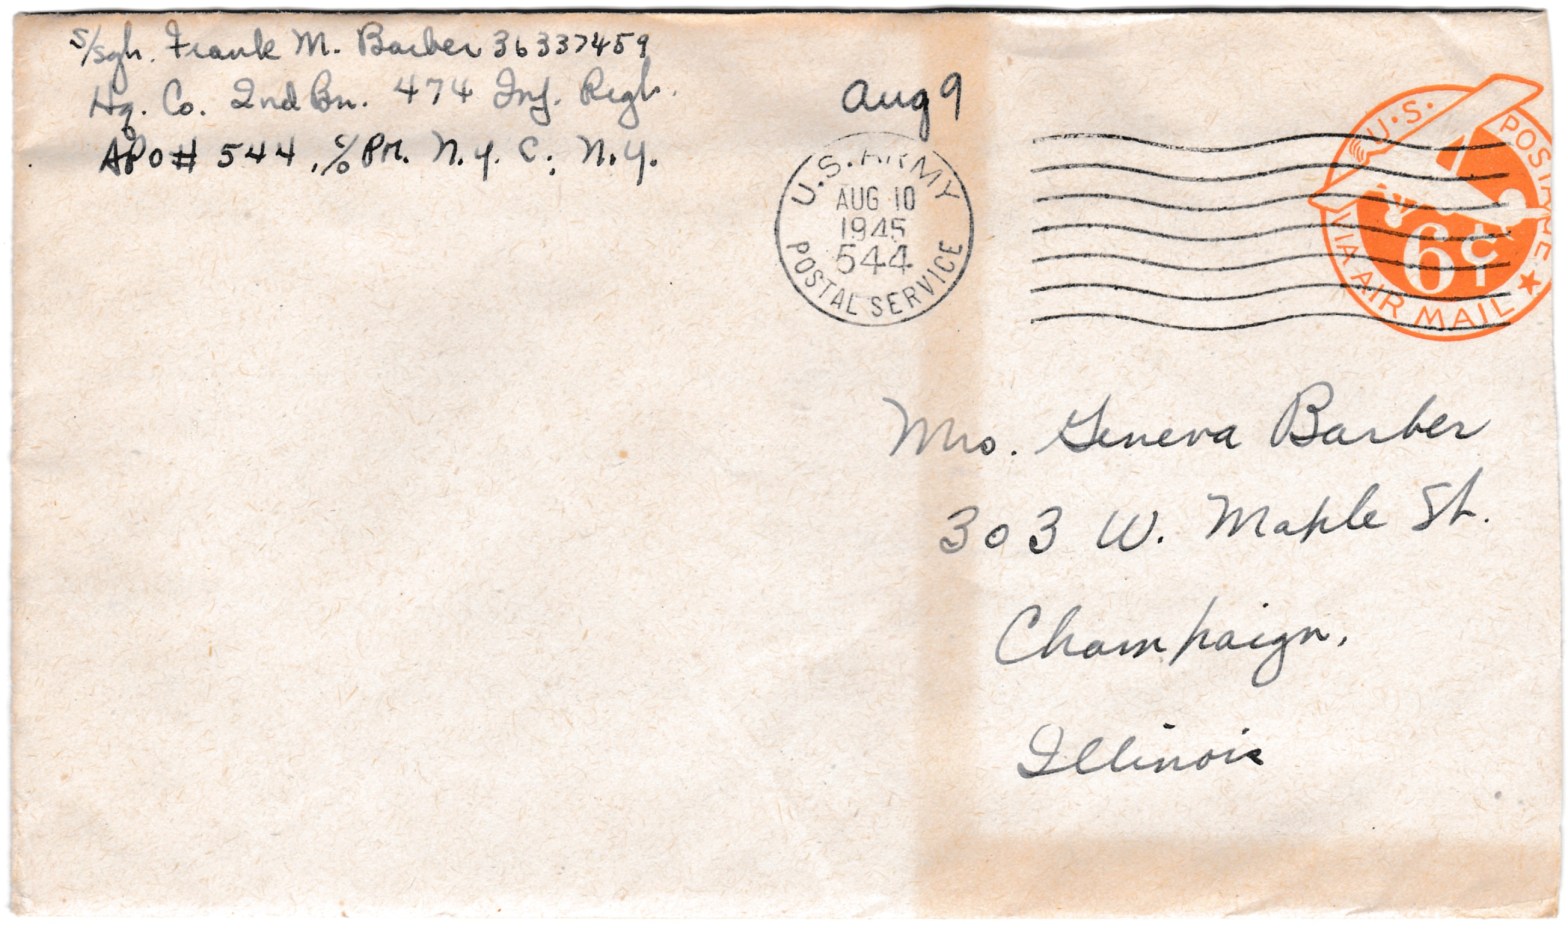 S/Sgt. Frank M. Barber 36337459
Hq. Co. 2nd Bn. 474 Inf. Regt.
APO# 544, c/o PM. N.Y.C., N.Y.
Aug 9
U.S. ARMY
AUG 10
1945
544
POSTAL SERVICE
U.S. POSTAGE
6¢
VIA AIR MAIL
Mrs. Geneva Barber
303 W. Maple St.
Champaign,
Illinois